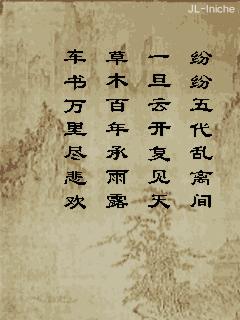 JL-Iniche
纷纷五代乱离间
一旦云开复见天
草木百年承雨露
车书万里尽悲欢